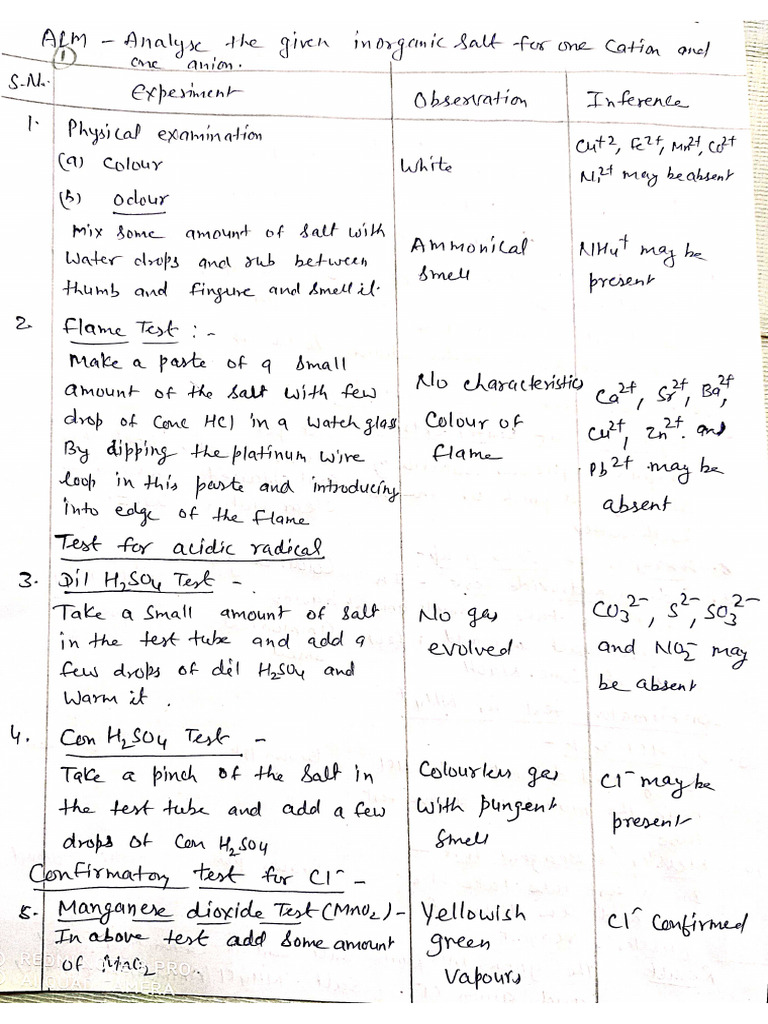 AIM - Analyse the given inorganic salt for one Cation and
① one anion.
S.No. Experiment Observation Inference
1. Physical examination
(a) Colour White Cu+2, Fe2+, Mn2+, Co2+
Ni2+ may be absent
(b) Odour
Mix Some amount of Salt with
Water drops and rub between
thumb and fingure and smell it.
Ammonical
Smell
NH4+ may be
present
2. Flame Test :-
Make a paste of a small
amount of the salt with few
drop of Conc HCl in a watch glass
By dipping the platinum wire
loop in this paste and introducing
into edge of the flame
No characteristic
Colour of
flame
Ca2+, Sr2+, Ba2+,
Cu2+, Zn2+ and
Pb2+ may be
absent
Test for acidic radical
3. Dil H2SO4 Test -
Take a Small amount of salt
in the test tube and add a
few drops of dil H2SO4 and
Warm it.
No gas
evolved
CO3 2-, S2-, SO3 2-
and NO2- may
be absent
4. Con H2SO4 Test -
Take a pinch of the Salt in
the test tube and add a few
drops of Con H2SO4
Colourless gas
With pungent
Smell
Cl- may be
present
Confirmatory test for Cl- -
5. Manganese dioxide Test (MnO2) -
In above test add Some amount
of MnO2
Yellowish
green
vapours
Cl- Confirmed